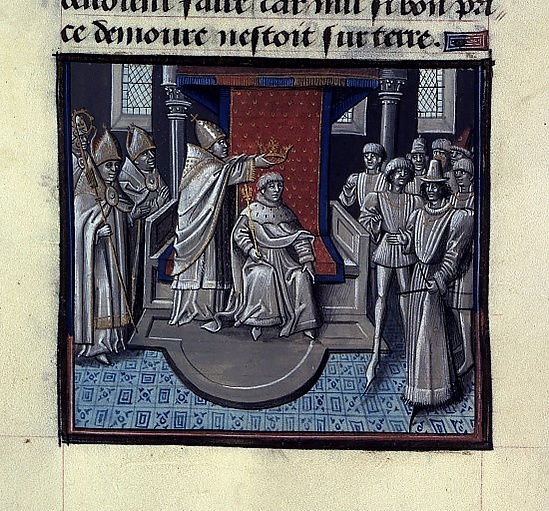 faire car nul si bon pri
ce demoure nestoit sur terre.